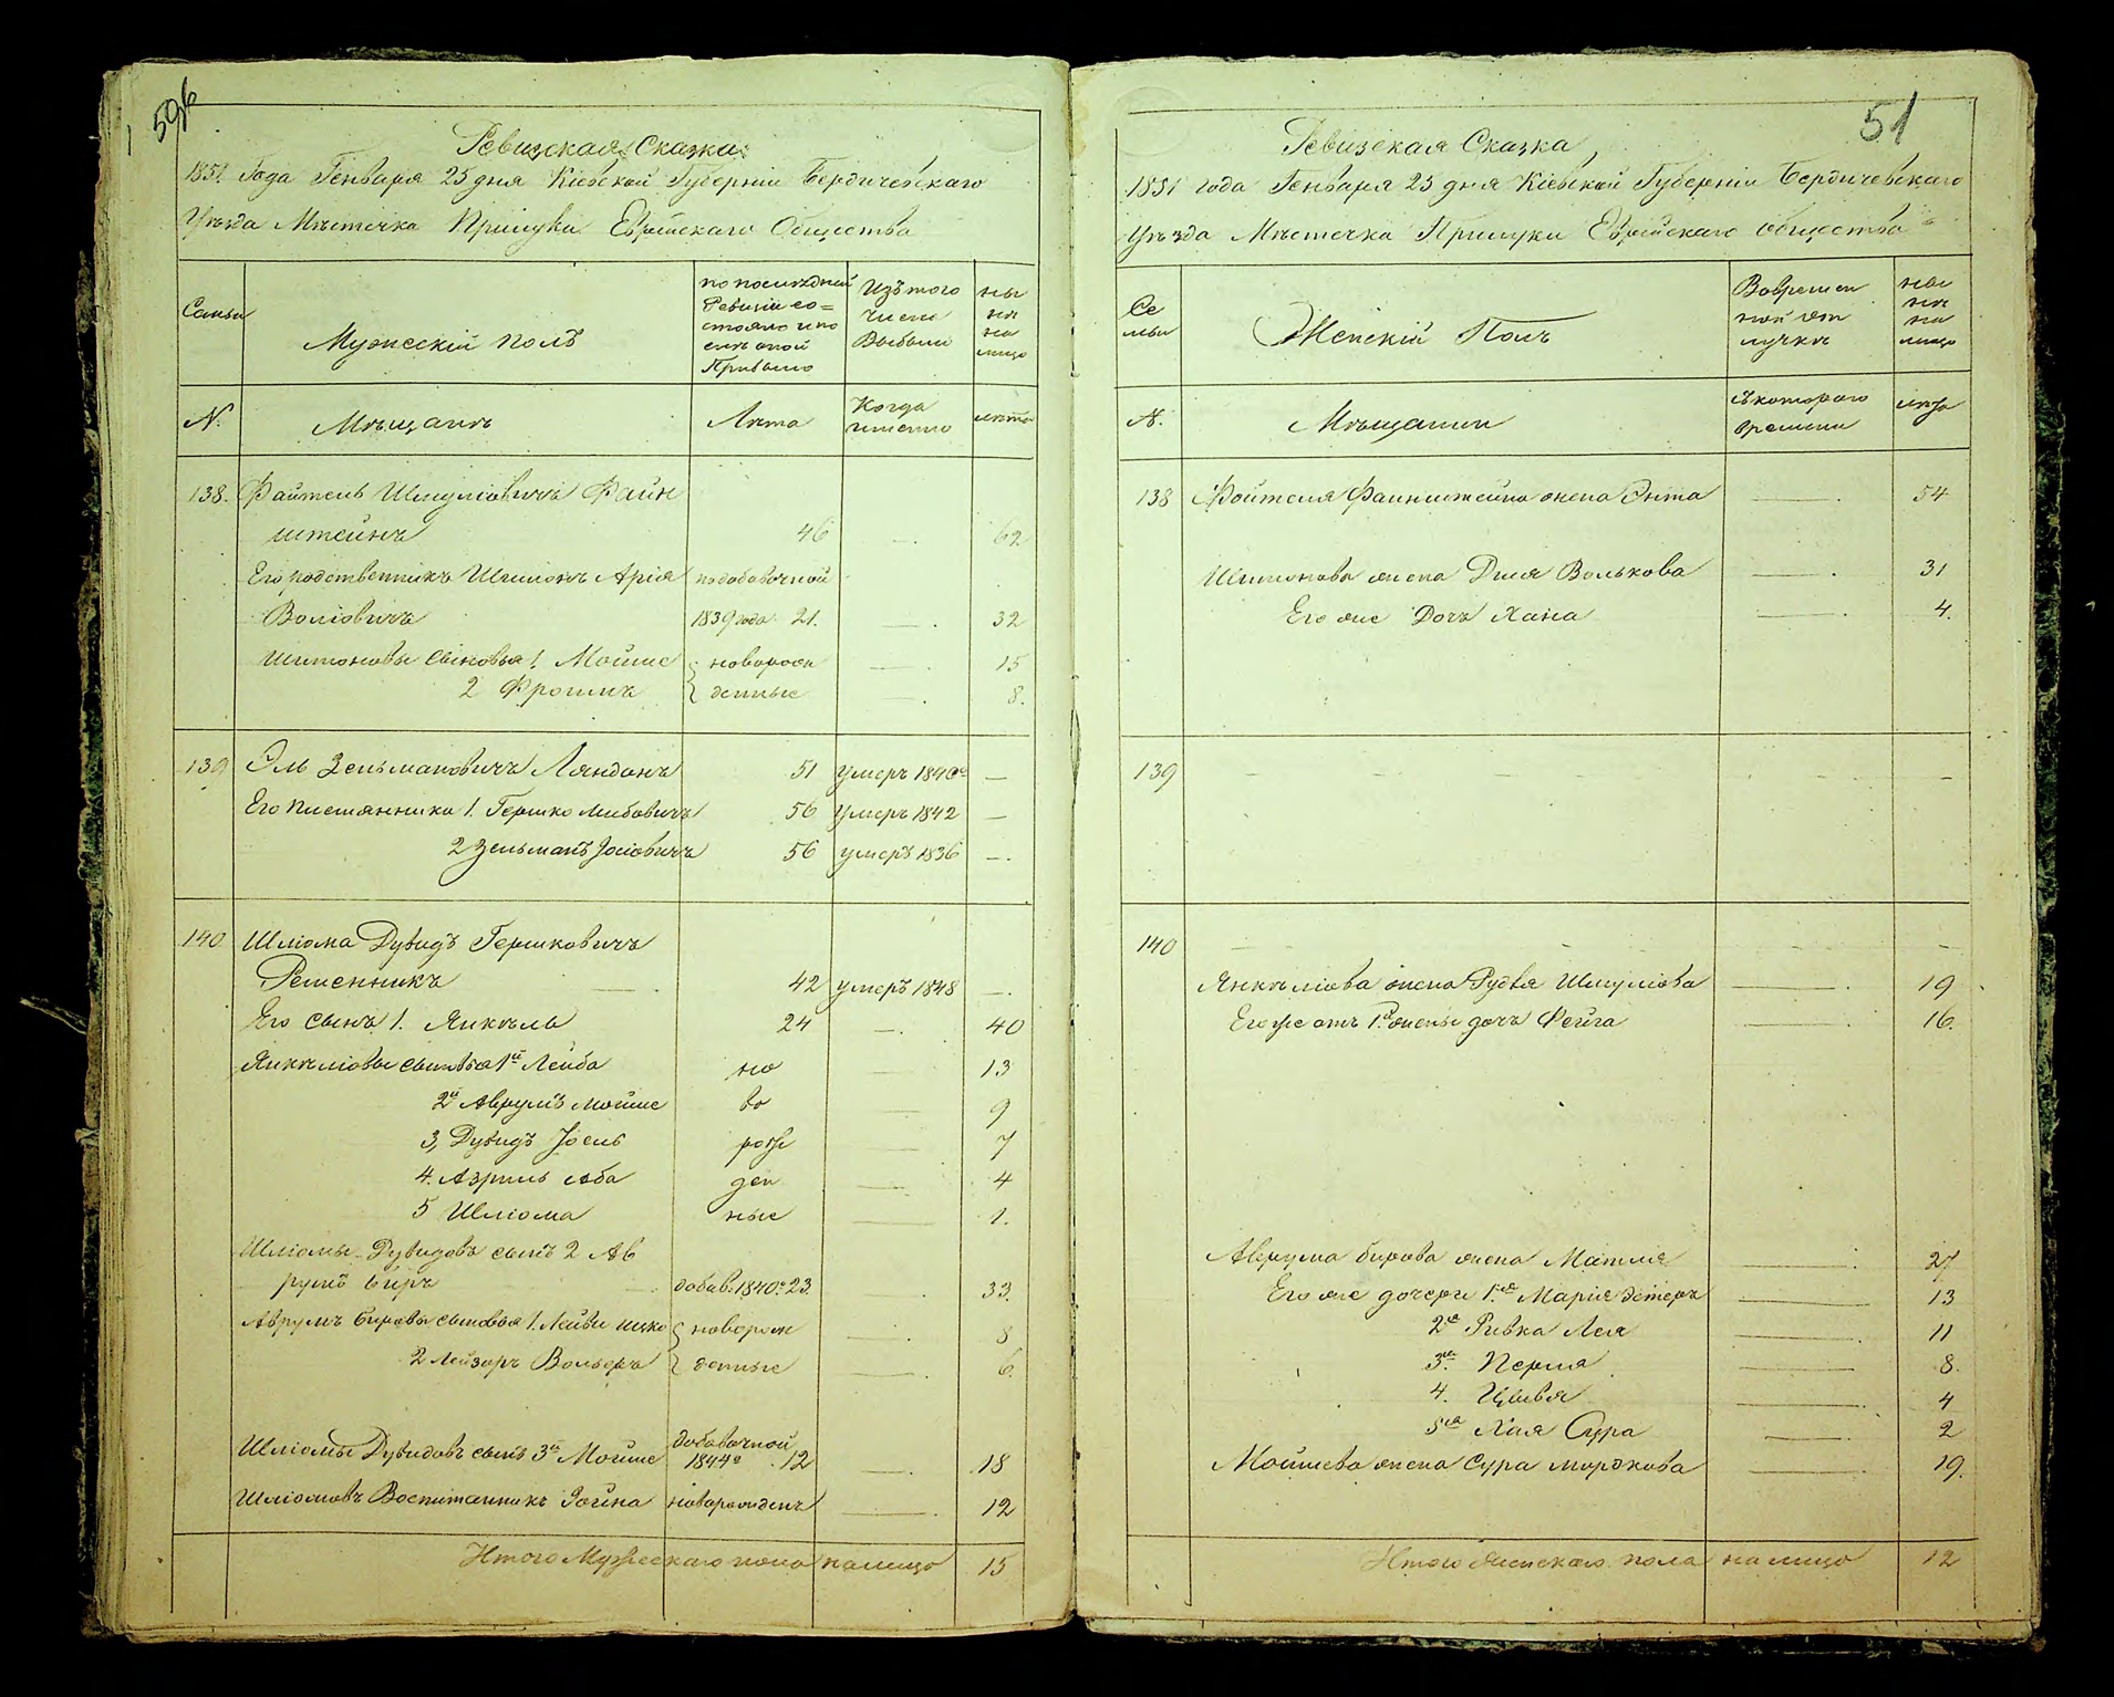 50об
Ревизская Сказка
1851 Года Генваря 25 дня Кіевской Губерніи Бердичевскаго
Уѣзда Мѣстечка Прилуки Еврейскаго Общества
Семьи
Мужескій полъ
по послѣдней Ревизіи состояло и послѣ оной Прибыло
Изъ того числа Выбыли
нынѣ на лицо
№.
Мѣщанъ
Лѣта
Когда именно
лѣта
138. Файтель Шмуліовичъ Файн
штейнъ 46 — 62
Его родственникъ Шлимонъ Арія по добавочной
Воліовичъ 1839 года 21. — 32
Шимоновы сыновья 1. Мойше новорож — 15
2 Фроимъ денные — 8.
139 Эль Зельмановичъ Ляндонъ 51 умеръ 1840 —
Его племянники 1. Гершко Лейбовичъ 56 умеръ 1842 —
2 Зельманъ Іосіовичъ 56 умеръ 1836 —
140 Шліома Дувидъ Гершковичъ
Решенникъ 42 умеръ 1848 —
Его сынъ 1. Янкель 24 — 40
Янкеліовы сыновья 1й Лейба но — 13
2й Аврумъ Мойше во — 9
3, Дувидъ Іосль рож — 7
4. Азриль Аба ден — 4
5 Шліома ные — 1.
Шліомы Дувидовъ сынъ 2 Ав
румъ Беръ добав. 1840 г 23. 33.
Аврумъ Беровы сыновья 1. Лейви Ицко новорож — 8
2 Лейзоръ Вольверъ денные — 6.
Шліомы Дувидовъ сынъ 3й Мойше добавочной 1844 г. 12 — 18
Шліомовъ Воспитанникъ новорожденъ — 12
Итого Мужескаго пола на лицо 15
51
Ревизская Сказка
1851 года Генваря 25 дня Кіевской Губерніи Бердичевскаго
Уѣзда Мѣстечка Прилуки Еврейскаго общества
Семьи
Женскій Полъ
Во временной отлучкѣ
нынѣ на лицо
№.
Мѣщанки
съ котораго времени
лѣта
138 Файтеля Файнштейна жена Энта — 54
Шимонова жена Дися Волькова — 31
Его же Дочь Хана — 4.
139
140
Янкеліова жена Рудля Шмуліова — 19
Его же отъ 1й жены дочь Фейга — 16.
Аврума Берова жена Матля — 27
Его же дочери 1я Марія Эстеръ — 13
2я Ривка Лея — 11
3я Перля — 8.
4. Цивья — 4
5я Хая Сура — 2
Мойшева жена Сура Мордкова — 19.
Итого женскаго пола на лицо 12